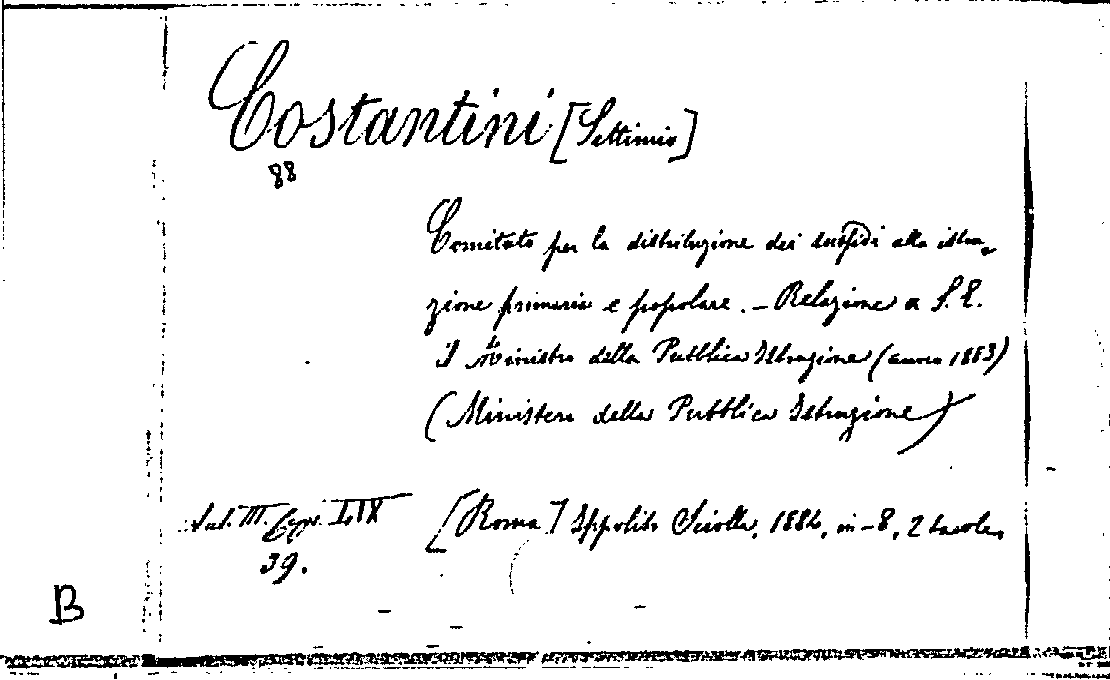 Costantini [Settimio]
88
Comitato per la distribuzione dei sussidi alla istru-
zione primaria e popolare. - Relazione a S. E.
il Ministro della Pubblica Istruzione (anno 1883)
(Ministero della Pubblica Istruzione)
[Roma] Ippolito Sciolla, 1884, in-8, 2 tavole.
39.
B